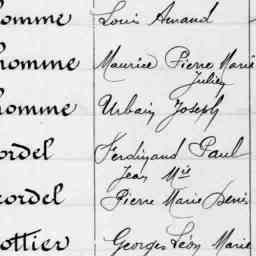 homme Louis Amand
homme Maurice Pierre Marie
Julien
homme Urbain Joseph
ordel Ferdinand Paul
Jean Mie
cordel Pierre Marie Denis
ottier Georges Léon Marie